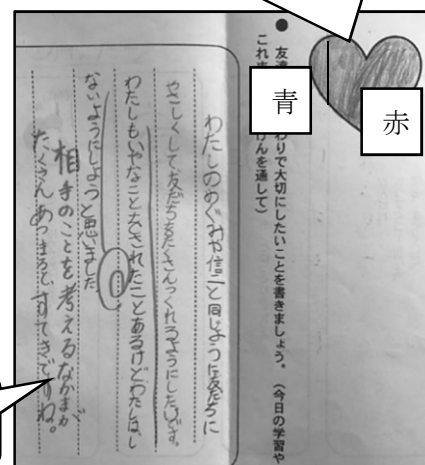 青
赤
● 友達
わりで大切にしたいことを書きましょう。（今日の学習や
これま
けんを通して）
わたしのめぐみや信二と同じように友だちに
やさしくして友だちをたくさんつくれるようにしたいです。
わたしもいやなことをされたことあるけどわたしはし
ないようにしようと思いました
相手のことを考えるなかまが
たくさんあつまるとすてきですね。